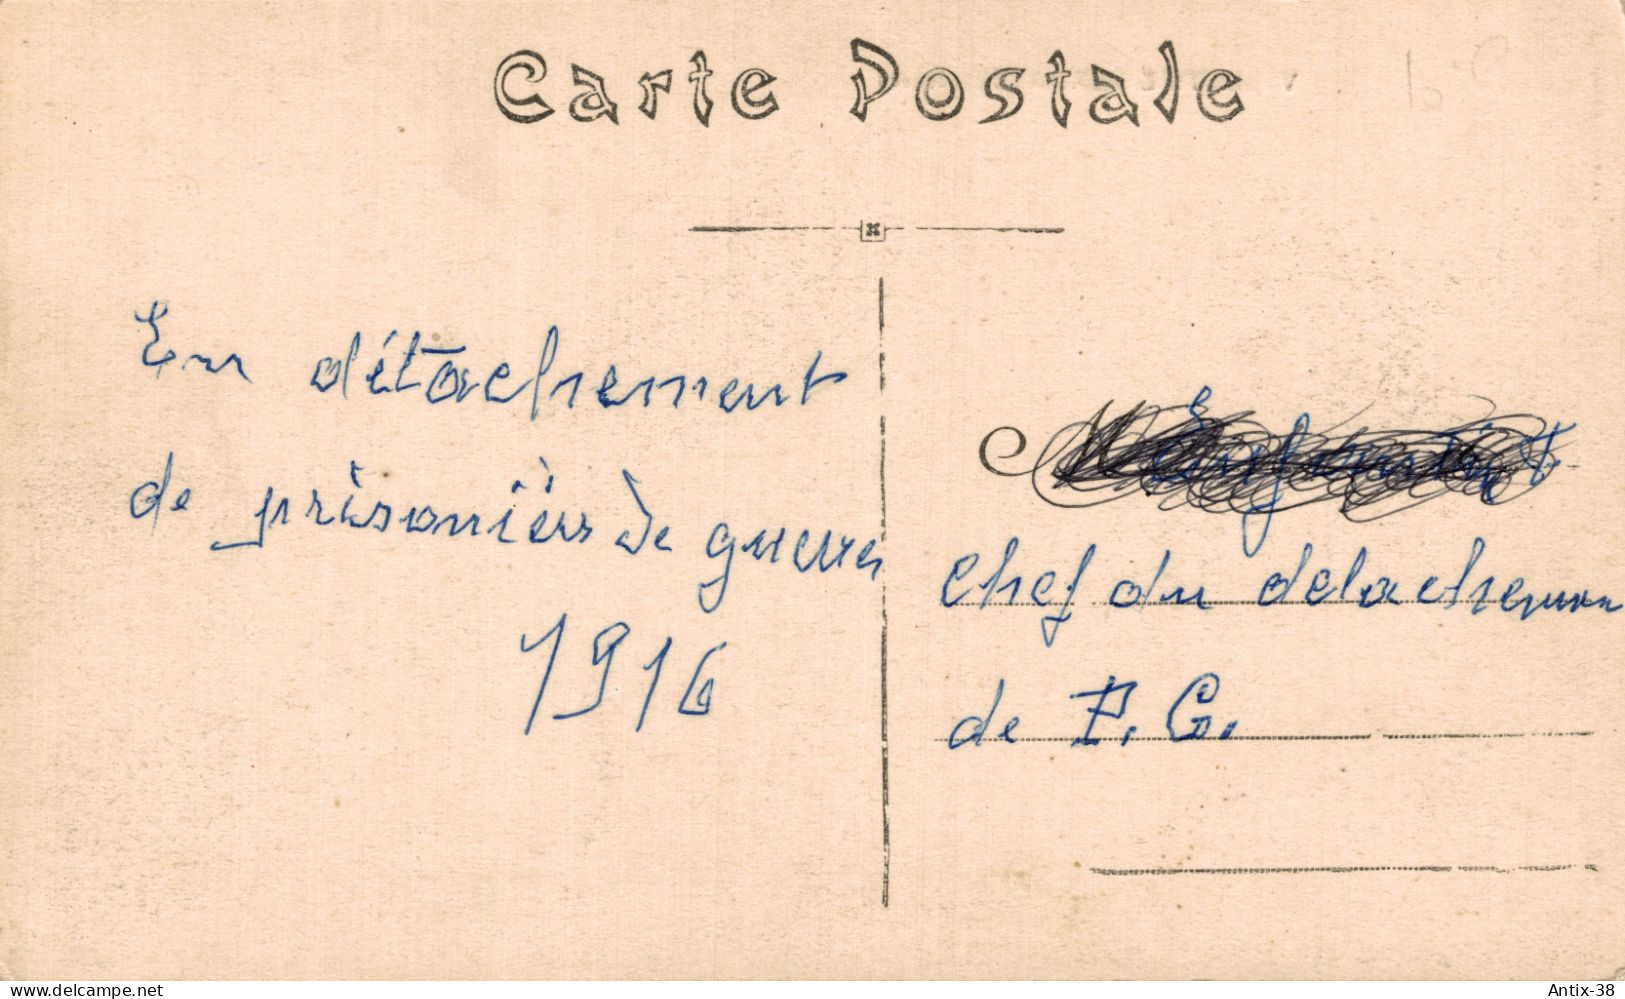 Carte Postale
En détachement
de prisoniers de guerre
1916
M
chef du detachement
de P. G.
www.delcampe.net
Antix-38